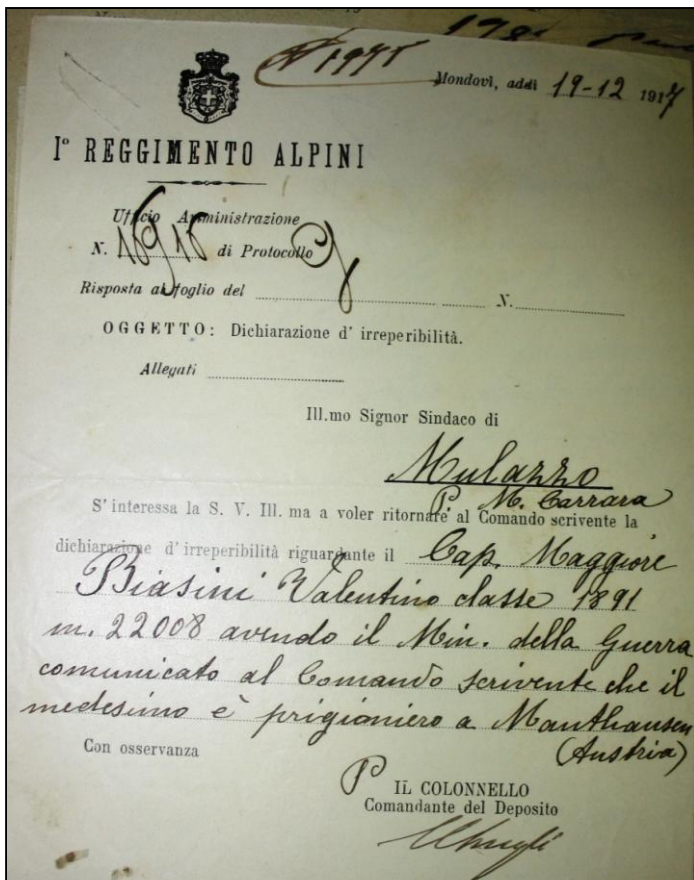 N 1975
Mondovì, addì 19-12 1917
Iº REGGIMENTO ALPINI
Ufficio Amministrazione
N. di Protocollo
Risposta al foglio del N.
OGGETTO: Dichiarazione d' irreperibilità.
Allegati
Ill.mo Signor Sindaco di
Mulazzo
P. M. Carrara
S' interessa la S. V. Ill. ma a voler ritornare al Comando scrivente la
dichiarazione d' irreperibilità riguardante il Cap. Maggiore
Biasini Valentino classe 1891
m. 22008 avendo il Min. della Guerra
comunicato al Comando scrivente che il
medesimo è prigioniero a Manthausen
(Austria)
Con osservanza
P IL COLONNELLO
Comandante del Deposito